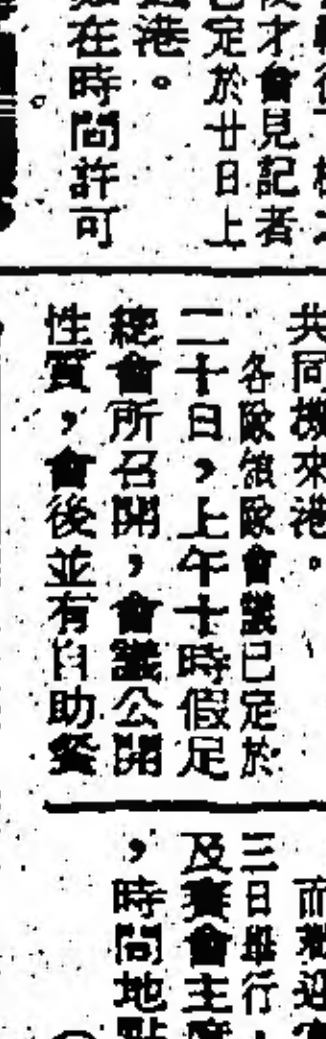 才會見記者
定於廿日上
港。
在時間許可
共同機來港。
各歐歐會議已定於
二十日，上午十時假足
總會所召開，會議公開
性質，會後並有自助餐
而歡迎
三日舉行，
及賽會主席
，時間地點